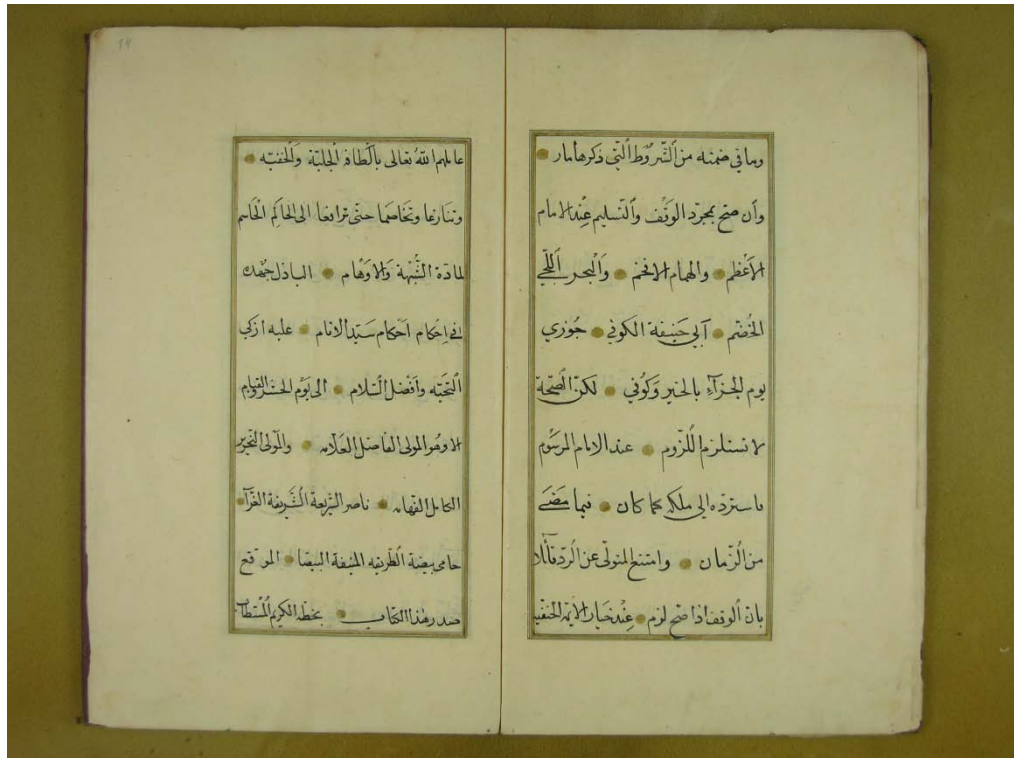 وما في ضمنه من الشروط التي ذكرها مار
وان صح بمجرد الوقف والتسليم عند الامام
الاعظم والهمام الافخم والبحر اللجي
الخضم ابي حنيفة الكوفي جوزي
يوم الجزآء بالخير وكوفي لكن الصحة
لا تستلزم اللزوم عند الامام المرسوم
فاسترده الى ملكه كما كان فيما مضى
من الزمان وامتنع المتولى عن الرد قائلا
بان الوقف اذا صح لزم عند خيار الايمة الحنفيه
عاملهم الله تعالى بالطافه الجلية والخفيه
وتنازعا وتخاصما حتى ترافعا الى الحاكم الحاسم
لمادة الشبهة والاوهام الباذل جهده
في احكام احكام سيد الانام عليه ازكى
التحيه وافضل السلام الى يوم الحشر والقيام
الا وهو المولى الفاضل العلامه والمولى النحرير
الكامل الفهامه ناصر الشريعة الشريفة الغرآ
حامى بيضة الطريقه المنيفة البيضا الموقع
صدر هذا الكتاب بخطه الكريم المستطاب